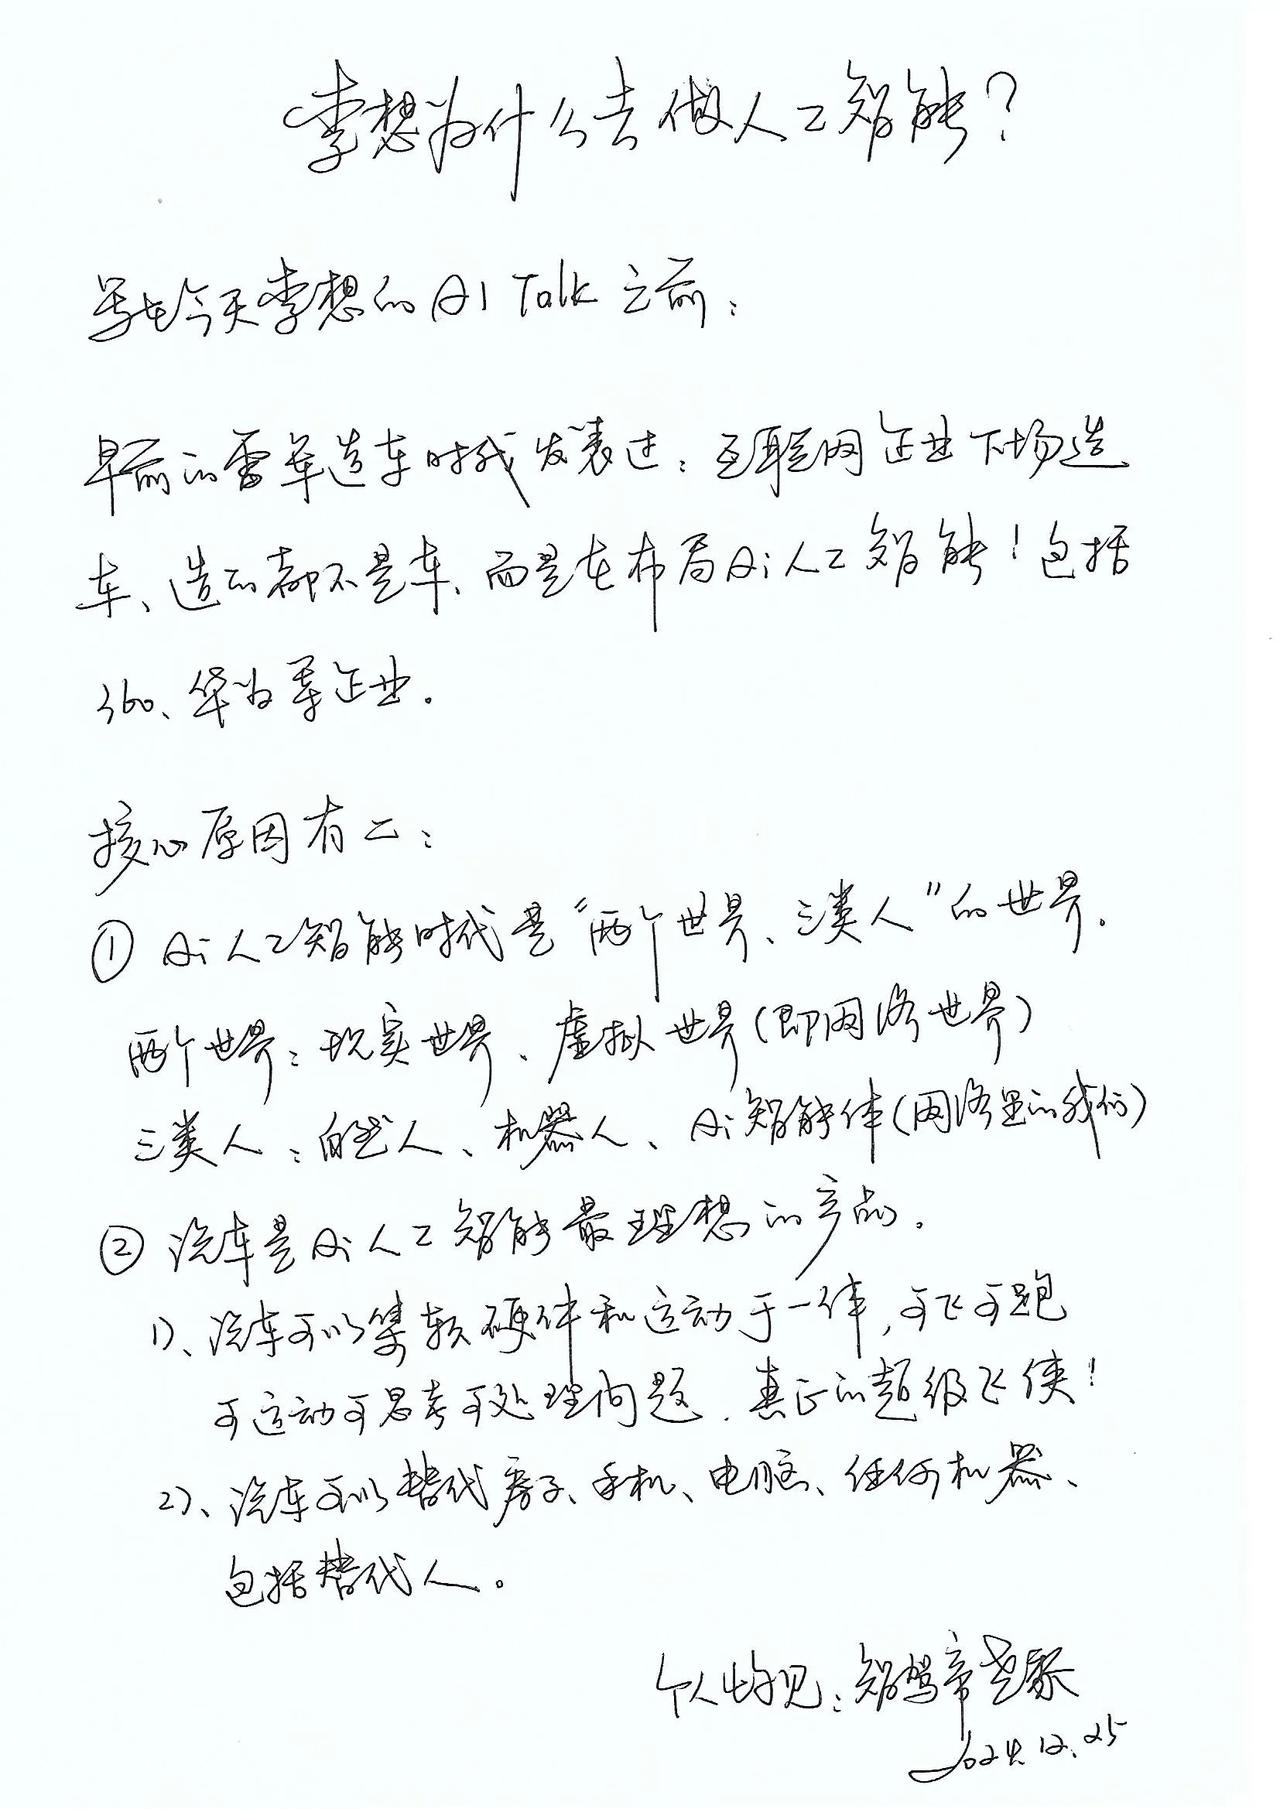 李想为什么去做人工智能？
写在今天李想的AI Talk之前：
早前的雷军造车时我发表过：互联网企业下场造
车、造的都不是车、而是在布局Ai人工智能！包括
360、华为等企业。
核心原因有二：
① Ai人工智能时代是“两个世界、三类人”的世界.
两个世界：现实世界、虚拟世界(即网络世界)
三类人：自然人、机器人、Ai智能体(网络里的我们)
② 汽车是Ai人工智能最理想的产品.
1)、汽车可以集软硬件和运动于一体,可飞可跑
可运动可思考可处理问题.真正的超级飞侠！
2)、汽车可以替代房子、手机、电脑、任何机器、
包括替代人。
个人拙见：智驾帝
2024.12.25